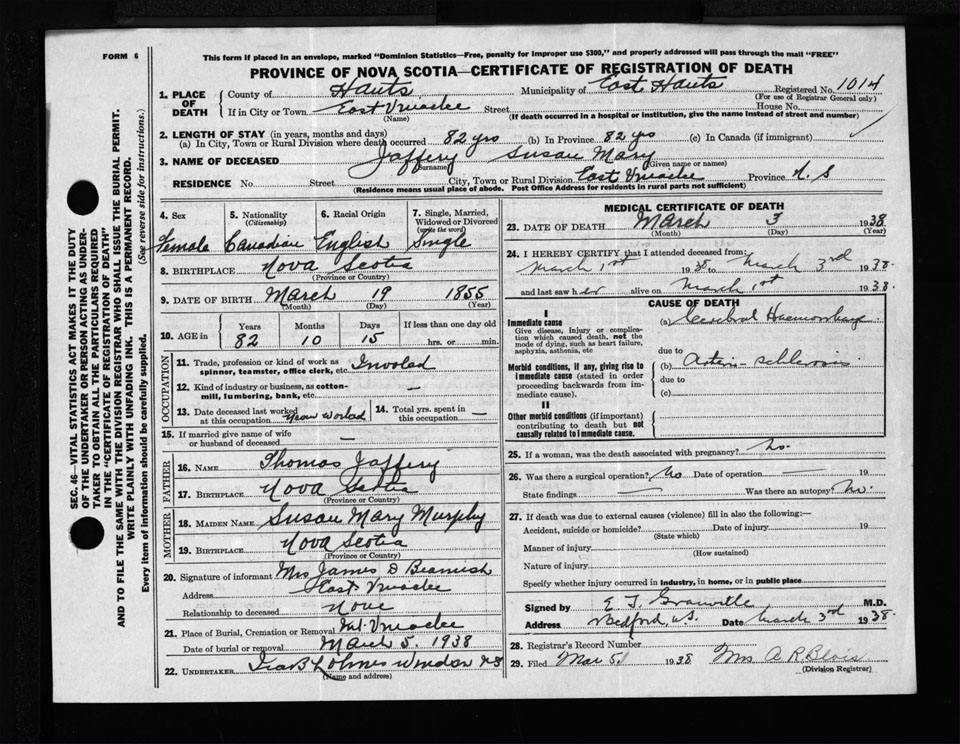 FORM 6
This form if placed in an envelope, marked "Dominion Statistics—Free, penalty for improper use $300," and properly addressed will pass through the mail "FREE"
PROVINCE OF NOVA SCOTIA—CERTIFICATE OF REGISTRATION OF DEATH
1. PLACE OF DEATH County of Hants Municipality of East Hants Registered No. 1014
(For use of Registrar General only)
If in City or Town East Uniacke Street House No.
(Name) (If death occurred in a hospital or institution, give the name instead of street and number)
2. LENGTH OF STAY (in years, months and days)
(a) In City, Town or Rural Division where death occurred 82 yrs (b) In Province 82 yrs (c) In Canada (if immigrant)
3. NAME OF DECEASED Jaffery Susan Mary
(Surname) (Given name or names)
RESIDENCE No. Street City, Town or Rural Division East Uniacke Province N. S
(Residence means usual place of abode. Post Office Address for residents in rural parts not sufficient)
4. Sex 5. Nationality (Citizenship) 6. Racial Origin 7. Single, Married, Widowed or Divorced (write the word)
Female Canadian English Single
8. BIRTHPLACE Nova Scotia
(Province or Country)
9. DATE OF BIRTH March 19 1855
(Month) (Day) (Year)
10. AGE in Years Months Days If less than one day old
82 10 15 hrs. or min.
OCCUPATION
11. Trade, profession or kind of work as spinner, teamster, office clerk, etc.
12. Kind of industry or business, as cotton-mill, lumbering, bank, etc. —
13. Date deceased last worked at this occupation Never worked 14. Total yrs. spent in this occupation —
15. If married give name of wife or husband of deceased —
FATHER
16. NAME Thomas Jaffery
17. BIRTHPLACE Nova Scotia
(Province or Country)
MOTHER
18. MAIDEN NAME Susan Mary Murphy
19. BIRTHPLACE Nova Scotia
(Province or Country)
20. Signature of informant Mrs James D Beamish
Address East Uniacke
Relationship to deceased None
21. Place of Burial, Cremation or Removal Mt. Uniacke
Date of burial or removal March 5, 1938
22. UNDERTAKER Windsor N S
(Name and address)
MEDICAL CERTIFICATE OF DEATH
23. DATE OF DEATH March 3 1938
(Month) (Day) (Year)
24. I HEREBY CERTIFY that I attended deceased from:
March 1st 1938 to March 3rd 1938.
and last saw her alive on March 1st 1938.
CAUSE OF DEATH
I
Immediate cause
Give disease, injury or complication which caused death, not the mode of dying, such as heart failure, asphyxia, asthenia, etc
(a) Cerebral Haemorrhage
due to
Morbid conditions, if any, giving rise to immediate cause (stated in order proceeding backwards from immediate cause).
(b)
due to
(c)
II
Other morbid conditions (if important) contributing to death but not causally related to immediate cause.
25. If a woman, was the death associated with pregnancy? No.
26. Was there a surgical operation? No Date of operation — 19
State findings — Was there an autopsy? No.
27. If death was due to external causes (violence) fill in also the following:—
Accident, suicide or homicide? Date of injury 19
(State which)
Manner of injury
(How sustained)
Nature of injury
Specify whether injury occurred in industry, in home, or in public place
Signed by E T Granville M.D.
Address Bedford, N.S. Date March 3rd 1938.
28. Registrar's Record Number
29. Filed Mar 5 1938 Mrs A R Blois
(Division Registrar)
SEC. 46—VITAL STATISTICS ACT MAKES IT THE DUTY
OF THE UNDERTAKER OR PERSON ACTING AS UNDER-
TAKER TO OBTAIN ALL THE PARTICULARS REQUIRED
IN THE "CERTIFICATE OF REGISTRATION OF DEATH"
AND TO FILE THE SAME WITH THE DIVISION REGISTRAR WHO SHALL ISSUE THE BURIAL PERMIT.
WRITE PLAINLY WITH UNFADING INK. THIS IS A PERMANENT RECORD.
Every item of information should be carefully supplied. (See reverse side for instructions.)